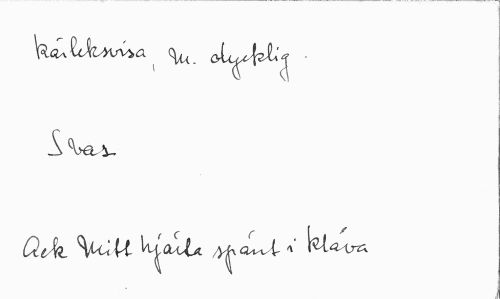 Kärleksvisa, m. dycklig.
Svas
Ack Mitt hjärta spänt i kláva